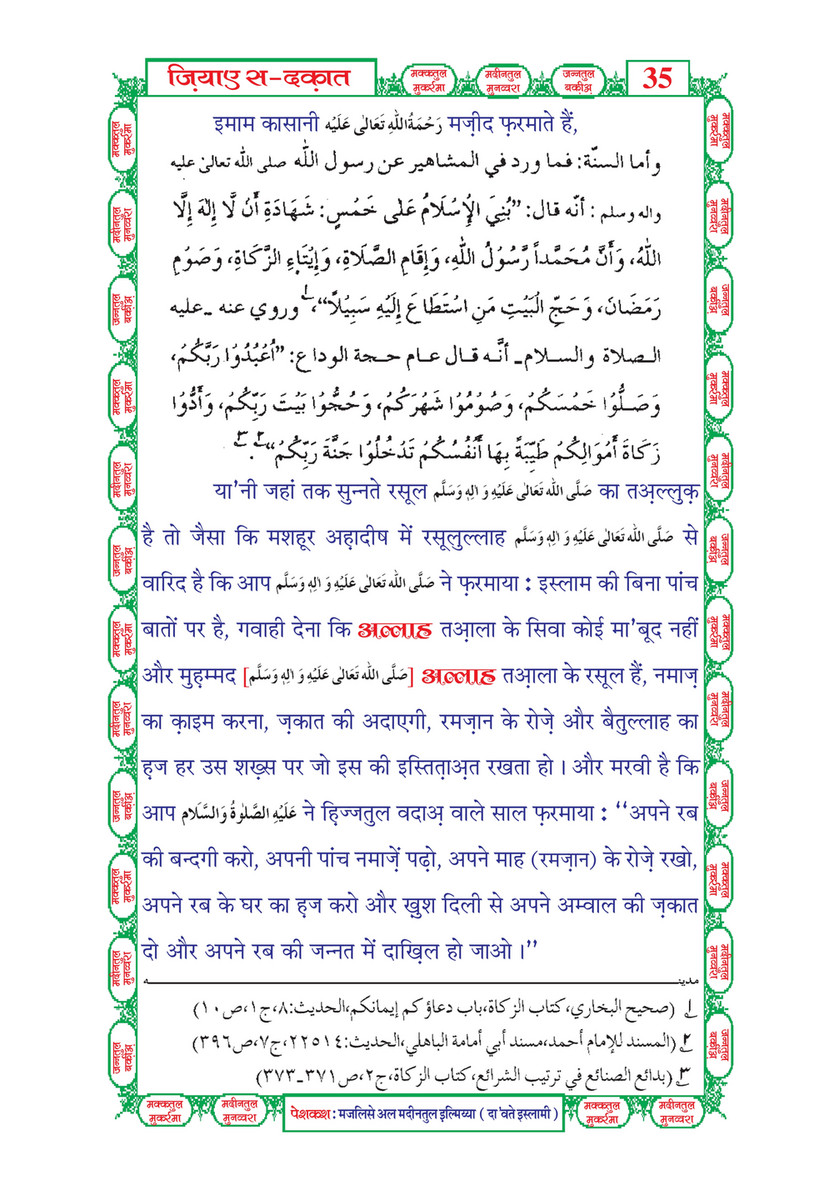 ज़ियाए स-दक़ात
मक्कतुल मुकर्रमा
मदीनतुल मुनव्वरा
जन्नतुल बक़ीअ़
35
इमाम कासानी رَحْمَةُاللّٰهِ تَعَالٰى عَلَيْه मज़ीद फ़रमाते हैं,
وأما السنّة: فما ورد في المشاهير عن رسول اللّٰه صلى الله تعالىٰ عليه
واله وسلم : أنّه قال: ”بُنِيَ الإِسْلَامُ عَلٰى خَمْسٍ: شَهَادَةِ أَن لَّا إِلٰهَ إِلَّا
اللّٰهُ، وَأَنَّ مُحَمَّداً رَّسُوْلُ اللّٰهِ، وَإِقَامِ الصَّلَاةِ، وَإِيْتَاءِ الزَّكَاةِ، وَصَوْمِ
رَمَضَانَ، وَحَجِّ الْبَيْتِ مَنِ اسْتَطَاعَ إِلَيْهِ سَبِيْلًا“،١ وروي عنه ـ عليه
الصلاة والسلام ـ أنَّه قال عام حجة الوداع: ”اُعْبُدُوْا رَبَّكُمْ،
وَصَلُّوْا خَمْسَكُمْ، وَصُوْمُوْا شَهْرَكُمْ، وَحُجُّوْا بَيْتَ رَبِّكُمْ، وَأَدُّوْا
زَكَاةَ أَمْوَالِكُمْ طَيِّبَةً بِهَا أَنْفُسُكُمْ تَدْخُلُوْا جَنَّةَ رَبِّكُمْ“٢.٣
या'नी जहां तक सुन्नते रसूल صَلَّى اللّٰه تَعَالٰى عَلَيْهِ وَ الِهٖ وَسَلَّم का तअ़ल्लुक़
है तो जैसा कि मशहूर अह़ादीष में रसूलुल्लाह صَلَّى اللّٰه تَعَالٰى عَلَيْهِ وَ الِهٖ وَسَلَّم से
वारिद है कि आप صَلَّى اللّٰه تَعَالٰى عَلَيْهِ وَ الِهٖ وَسَلَّم ने फ़रमाया : इस्लाम की बिना पांच
बातों पर है, गवाही देना कि अल्लाह तआ़ला के सिवा कोई मा'बूद नहीं
और मुह़म्मद [صَلَّى اللّٰه تَعَالٰى عَلَيْهِ وَ الِهٖ وَسَلَّم] अल्लाह तआ़ला के रसूल हैं, नमाज़
का क़ाइम करना, ज़कात की अदाएगी, रमज़ान के रोज़े और बैतुल्लाह का
ह़ज हर उस शख़्स पर जो इस की इस्तित़ाअ़त रखता हो । और मरवी है कि
आप عَلَيْهِ الصَّلٰوةُ وَالسَّلَام ने ह़िज्जतुल वदाअ़ वाले साल फ़रमाया : ‘‘अपने रब
की बन्दगी करो, अपनी पांच नमाज़ें पढ़ो, अपने माह (रमज़ान) के रोज़े रखो,
अपने रब के घर का ह़ज करो और ख़ुश दिली से अपने अम्वाल की ज़कात
दो और अपने रब की जन्नत में दाख़िल हो जाओ ।’’
مدينه
١ (صحيح البخاري،كتاب الزكاة،باب دعاؤكم إيمانكم،الحديث:٨،ج١،ص١٠)
٢ (المسند للإمام أحمد،مسند أبي أمامة الباهلي،الحديث:٢٢٥١٤،ج٧،ص٣٩٦)
٣ (بدائع الصنائع في ترتيب الشرائع،كتاب الزكاة،ج٢،ص٣٧١ـ٣٧٣)
मक्कतुल मुकर्रमा
मदीनतुल मुनव्वरा
पेशकश : मजलिसे अल मदीनतुल इल्मिय्या ( दा'वते इस्लामी )
मक्कतुल मुकर्रमा
मदीनतुल मुनव्वरा